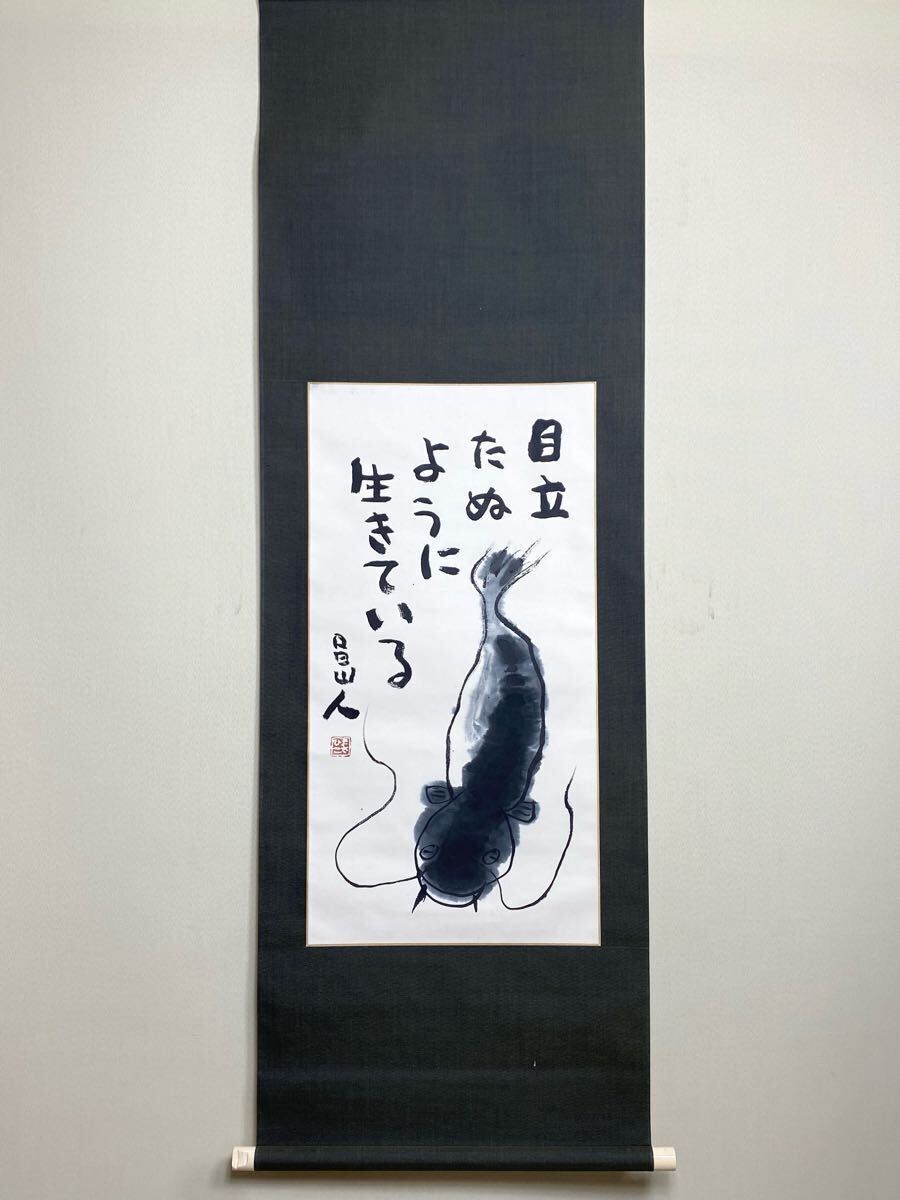 目立
たぬ
ように
生きている